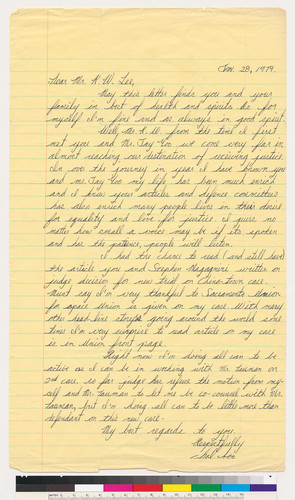 Jan. 28, 1979
Dear Mr. K. W. Lee,
May this letter finds you and your
family in best of health and spirits. As for
myself I'm fine and as always in good spirit.
Well, Mr. K. W. from the time I first
met you and Mr. Jay Yoo we come very far in
almost reaching our destination of receiving justice.
In over the journey in year I have known you
and Mr. Jay Yoo my life has been much enrich
and I knew your articles and defense committee
has also enrich many people lives in their desire
for equality and love for justice. I guess no
matter how small a voices may be if its spoken
and has the patience, people will listen.
I had the chance to read (and still have)
the article you and Stephen Magagnini written on
judge decision for new trial on China-town case.
Must say I'm very thankful to Sacramento Union
for space Union is given on my case. With many
other head-line storys going around the world some
time I'm very surprise to read article on my case
is in Union front page.
Right now I'm doing all can to be
active as I can be in working with Mr. Tauman on
2nd case. So far judge has refuse the motion from my-
self and Mr. Tauman to let me be co-counsel with Mr.
Tauman, but I'm doing all can to be little more than
defendant on this new case.
My best regards to you.
Respectfully
Chol Soo